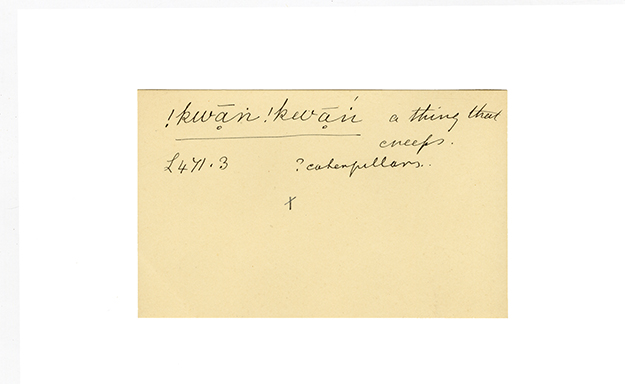 !kwā̤ṅ !kwā̤ṅ́ a thing that
creeps.
L471.3 ? caterpillars.
X